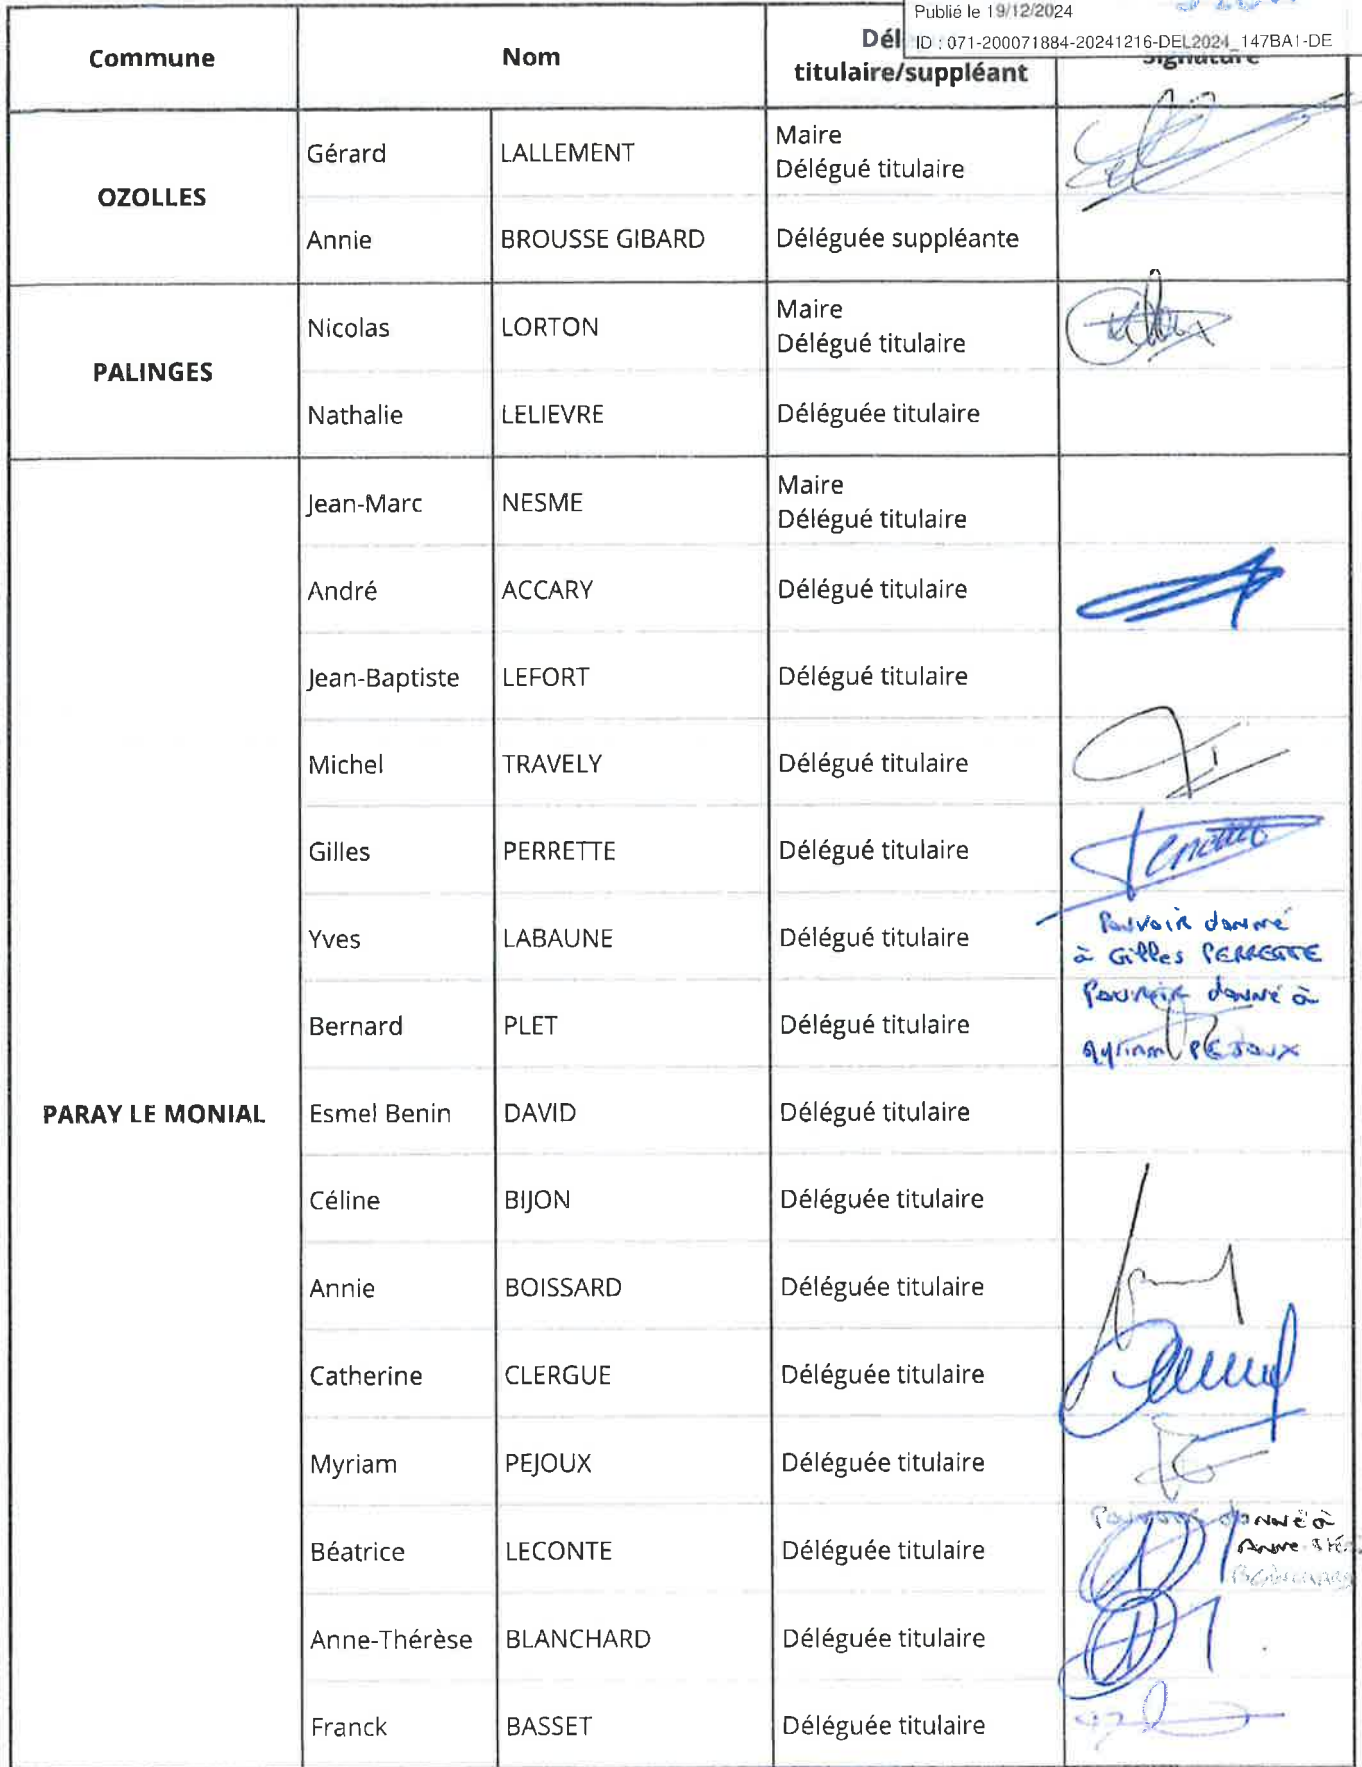 Publié le 19/12/2024
ID : 071-200071884-20241216-DEL2024_147BA1-DE
Commune
Nom
titulaire/suppléant
Signature
OZOLLES
Gérard LALLEMENT Maire
Délégué titulaire
Annie BROUSSE GIBARD Déléguée suppléante
PALINGES
Nicolas LORTON Maire
Délégué titulaire
Nathalie LELIEVRE Déléguée titulaire
PARAY LE MONIAL
Jean-Marc NESME Maire
Délégué titulaire
André ACCARY Délégué titulaire
Jean-Baptiste LEFORT Délégué titulaire
Michel TRAVELY Délégué titulaire
Gilles PERRETTE Délégué titulaire
Yves LABAUNE Délégué titulaire
Pouvoir donné
à Gilles PERRETTE
Bernard PLET Délégué titulaire
Pouvoir donné à
Myriam PEJOUX
Esmel Benin DAVID Délégué titulaire
Céline BIJON Déléguée titulaire
Annie BOISSARD Déléguée titulaire
Catherine CLERGUE Déléguée titulaire
Myriam PEJOUX Déléguée titulaire
Béatrice LECONTE Déléguée titulaire
Pouvoir donné à
Anne
BLANCHARD
Anne-Thérèse BLANCHARD Déléguée titulaire
Franck BASSET Déléguée titulaire